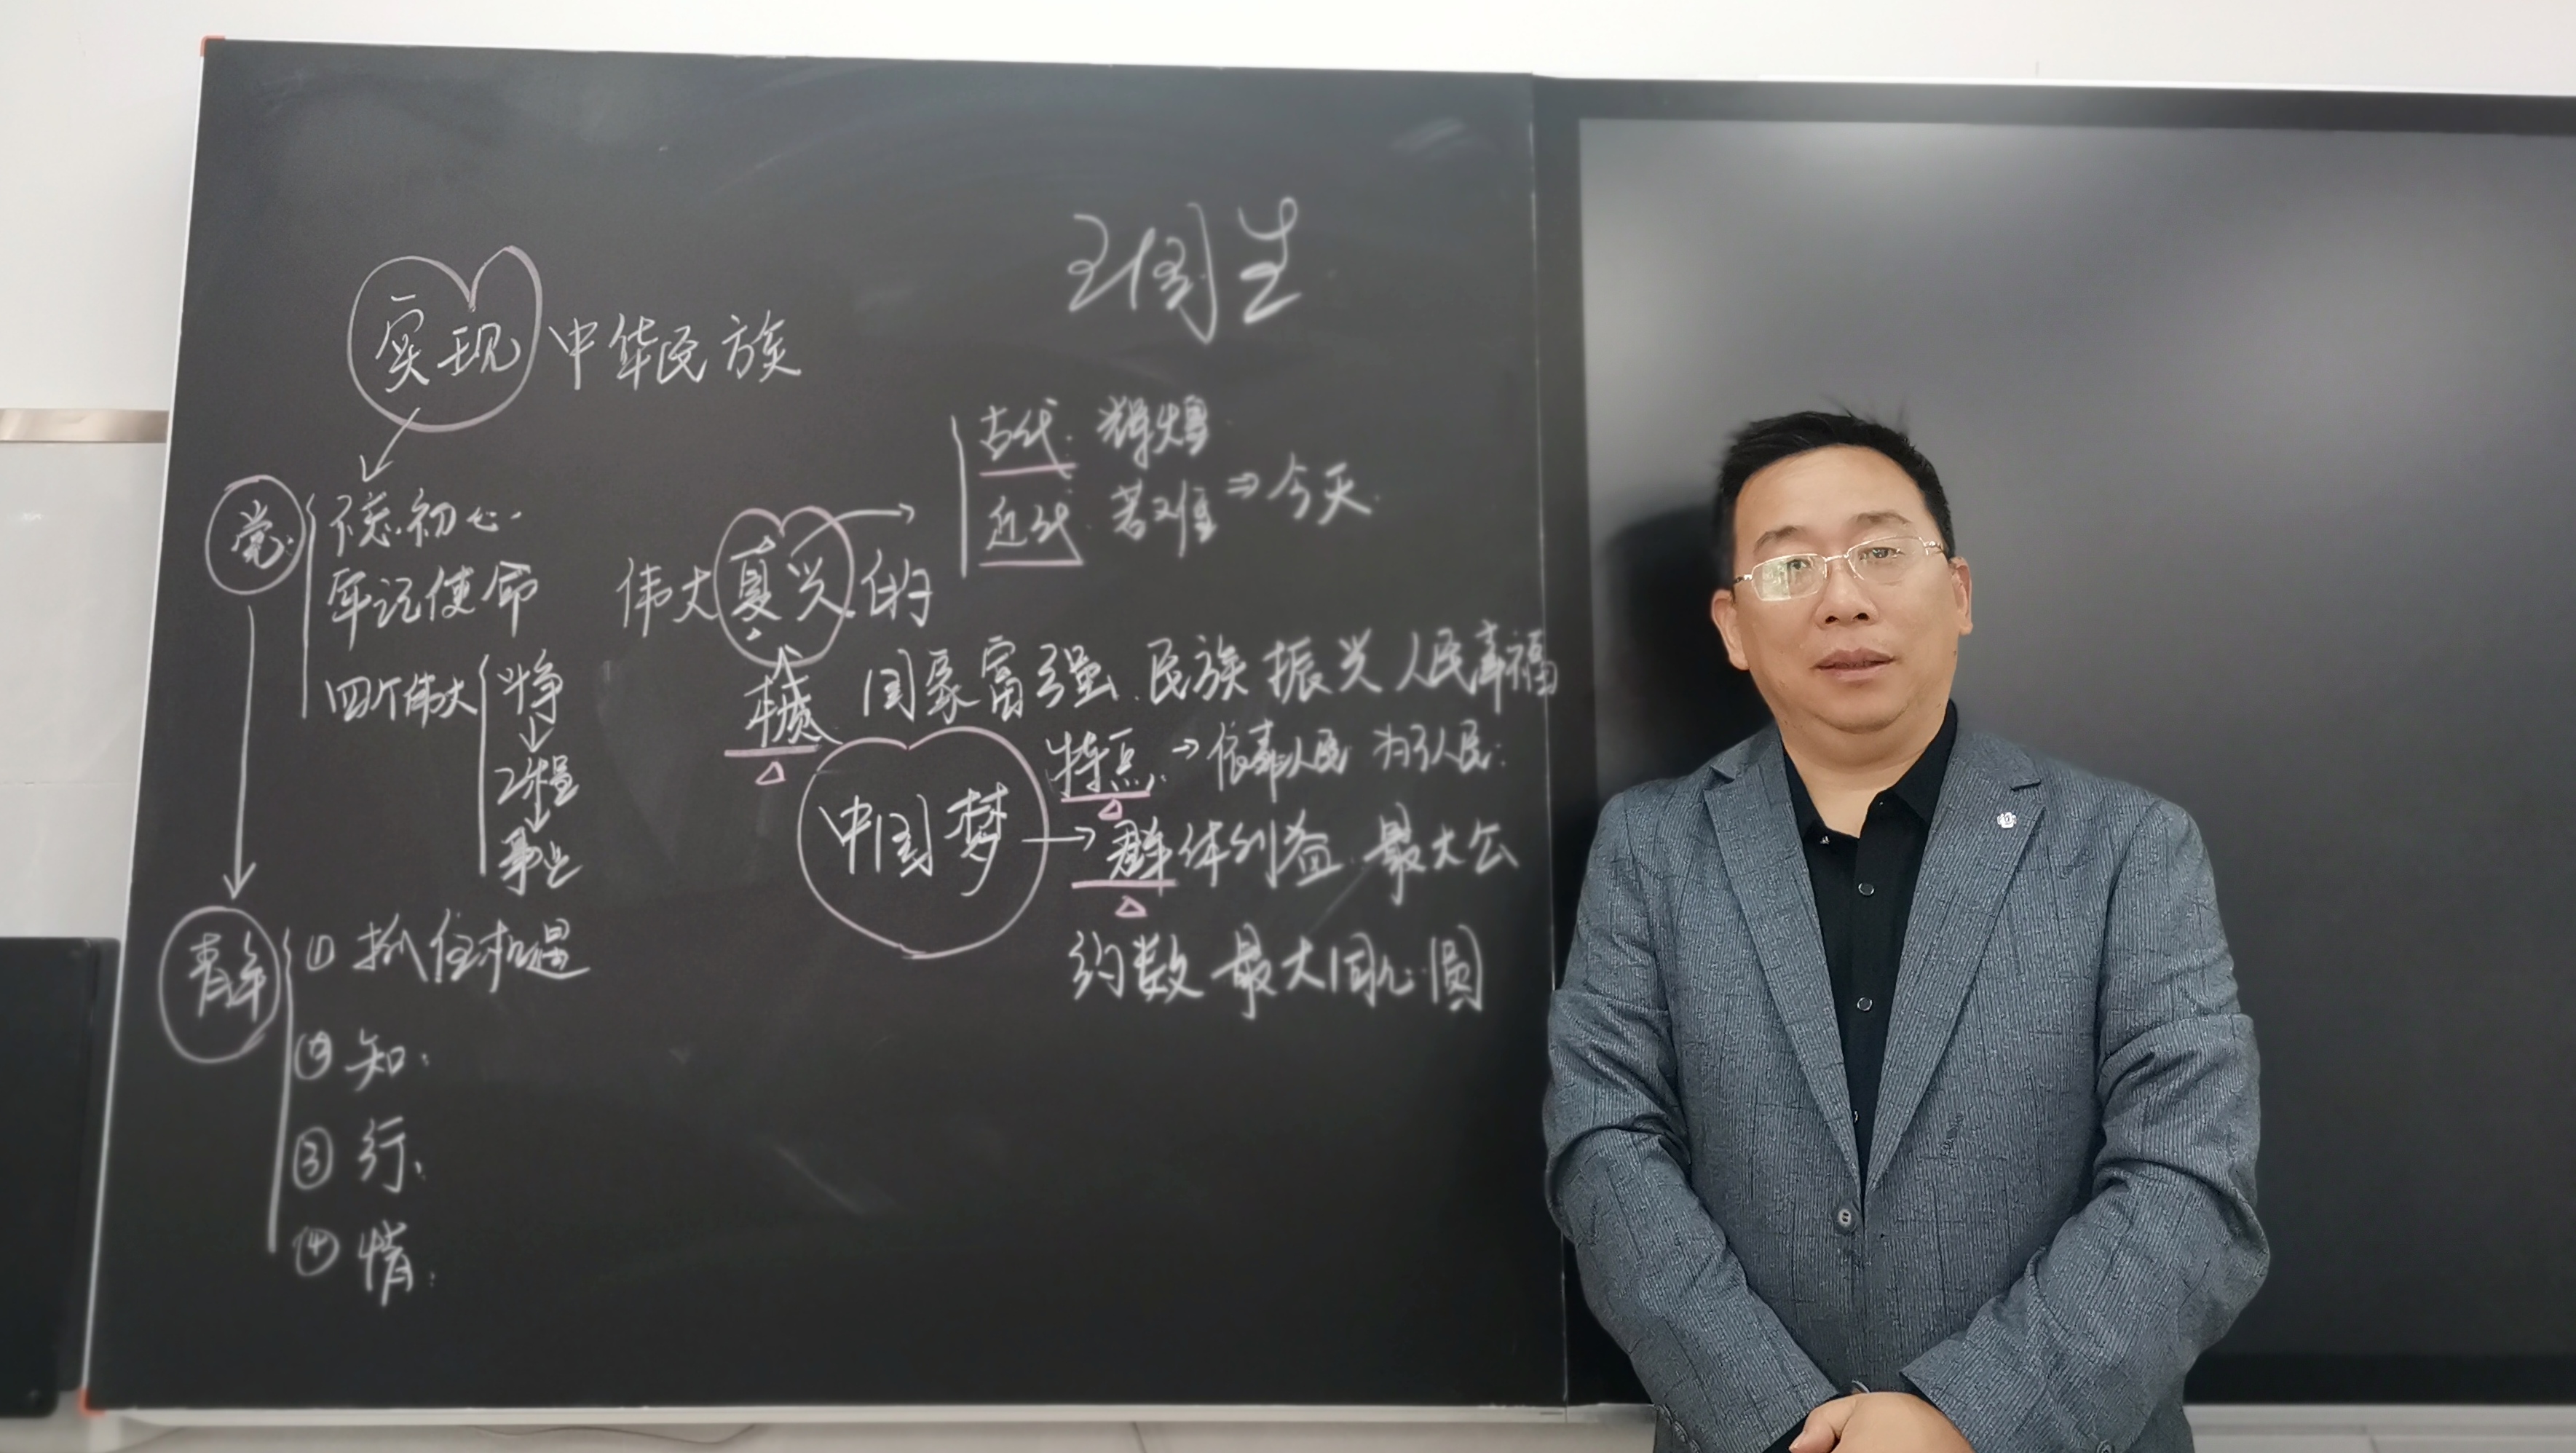 王周生
实现中华民族
古代：辉煌
近代：苦难⇒今天
党：不忘初心
牢记使命
伟大复兴的
四个伟大 斗争
工程
事业
本质 国家富强 民族振兴 人民幸福
特点：→依靠人民 为了人民
中国梦→群体利益 最大公
约数 最大同心圆
青年 ①抓住机遇
②知：
③行：
④情：